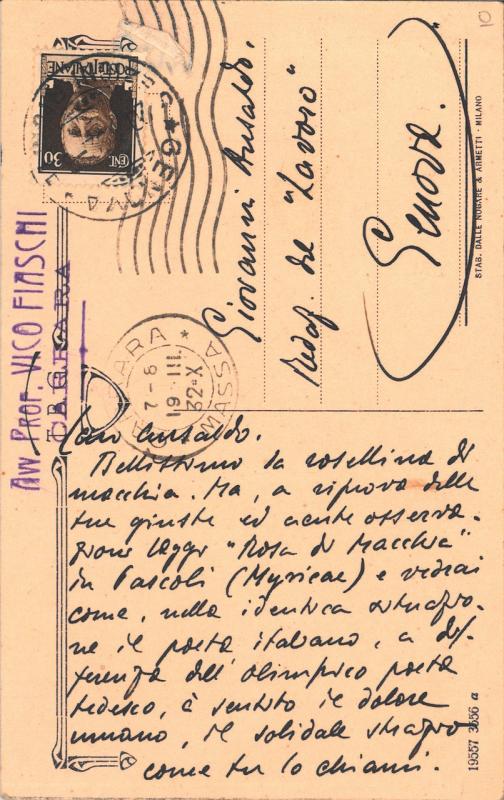 10
POSTE ITALIANE
30
CENT.
GENOVA
AVV. PROF. VICO FIASCHI
CARRARA
CARRARA * MASSA
7-8
19 III.
32-X
Giovanni Ansaldo.
Redaz. del "Lavoro"
Genova.
STAB. DALLE NOGARE & ARMETTI - MILANO
Caro Ansaldo.
Bellissimo la rosellina di
macchia. Ma, a riprova delle
tue giuste ed acute osserva-
zioni leggi "Rosa di Macchia"
in Pascoli (Myricae) e vedrai
come, nella identica situazio-
ne il poeta italiano, a dif-
ferenza dell'olimpico poeta
tedesco, à sentito il dolore
umano, il solidale strazio
come tu lo chiami.
19557 3656 a